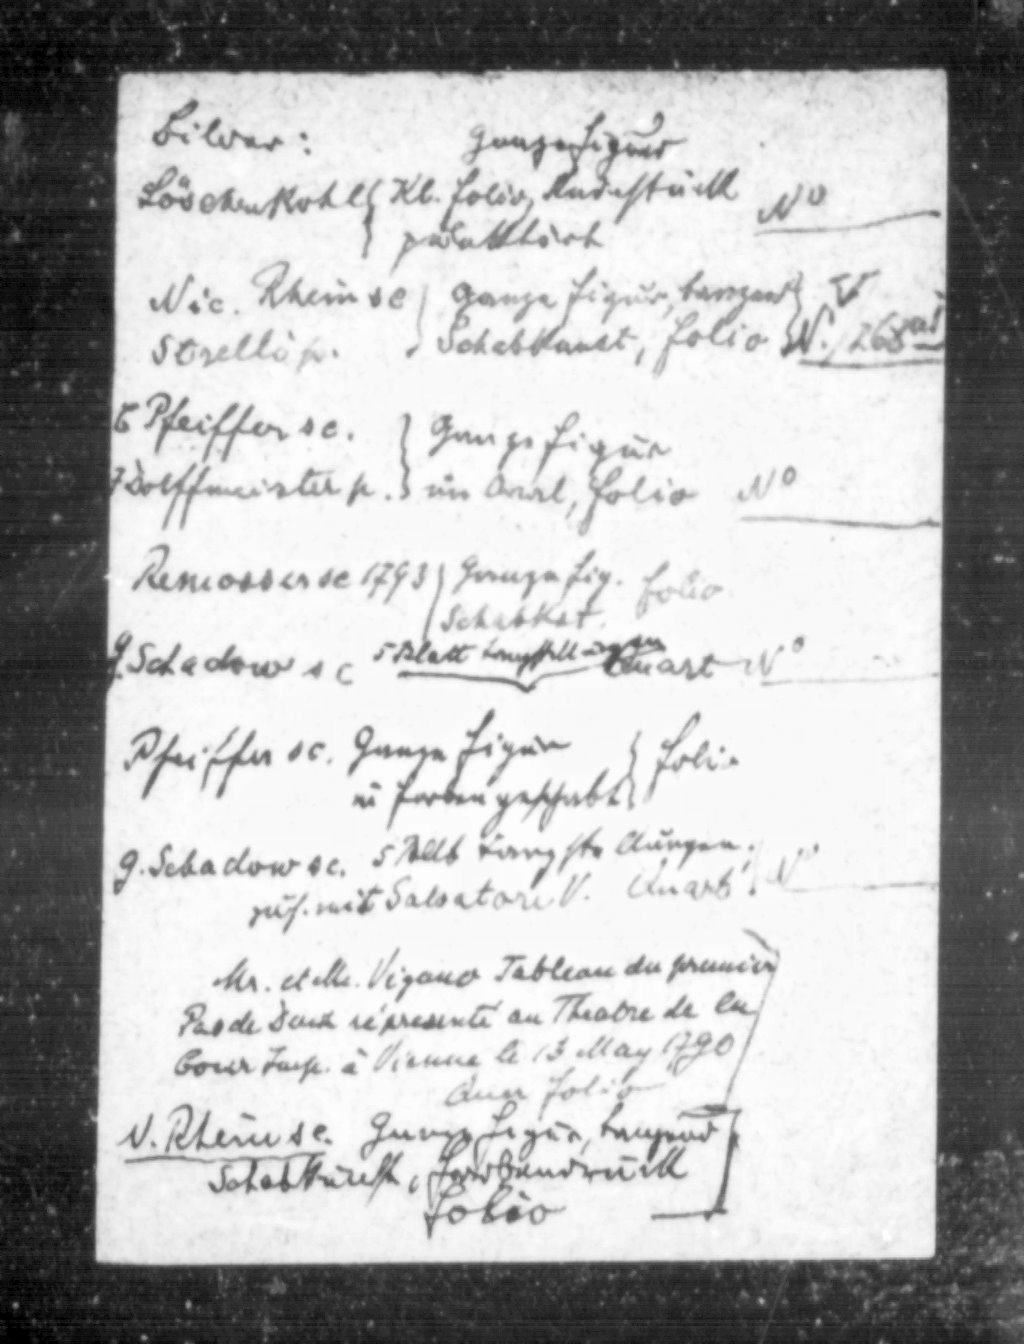 Bilder: Ganze Figur
Löschenkohl Kl. Folio, Rundstück No
Nic. Rhein sc Ganze Figur, tanzend V
Schabkunst, Folio N. 268
C Pfeiffer sc. Ganze Figur
Dorffmeister p. in Oval, Folio No
sc 1793 Ganze Fig. Folio
Schabkst.
G. Schadow sc 5 Blatt Quart No
Pfeiffer sc. Ganze Figur Folio
in Farben geschabt
G. Schadow sc. 5 Bltt Quart N
mit Salvatore V.
Mr. et Me. Vigano Tableau du premier
Pas de Deux réprésenté au Theatre de la
Cour Imp. à Vienne le 13 May 1790
Quer Folio
N. Rhein sc. Ganze Figur, tanzend
Schabkunst, Farbendruck
Folio